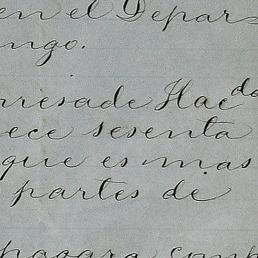 en el Depar=
ngo.
presa de Hac.da
ece sesenta
que es mas
partes de
pagara comp